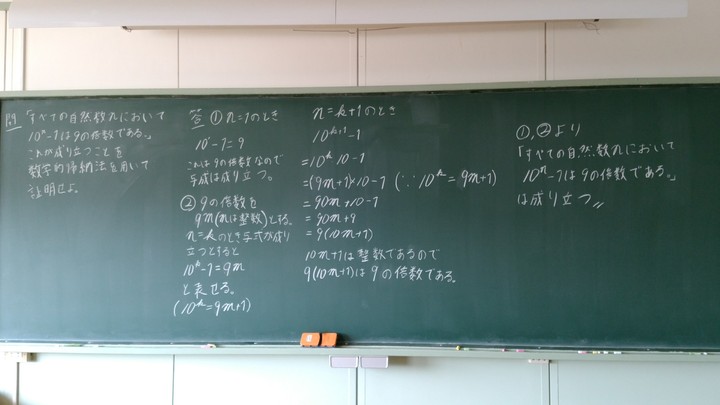 「すべての自然数nにおいて
10ⁿ-1は9の倍数である。」
これが成り立つことを
数学的帰納法を用いて
証明せよ。
答 ① n=1のとき
10¹-1=9
これは9の倍数なので
与式は成り立つ。
② 9の倍数を
9m(mは整数)とする。
n=kのとき与式が成り
立つとすると
10ᵏ-1=9m
と表せる。
(10ᵏ=9m+1)
n=k+1のとき
10ᵏ⁺¹-1
=10ᵏ・10-1
=(9m+1)×10-1 (∵10ᵏ=9m+1)
=90m+10-1
=90m+9
=9(10m+1)
10m+1は整数であるので
9(10m+1)は9の倍数である。
①,②より
「すべての自然数nにおいて
10ⁿ-1は9の倍数である。」
は成り立つ〃